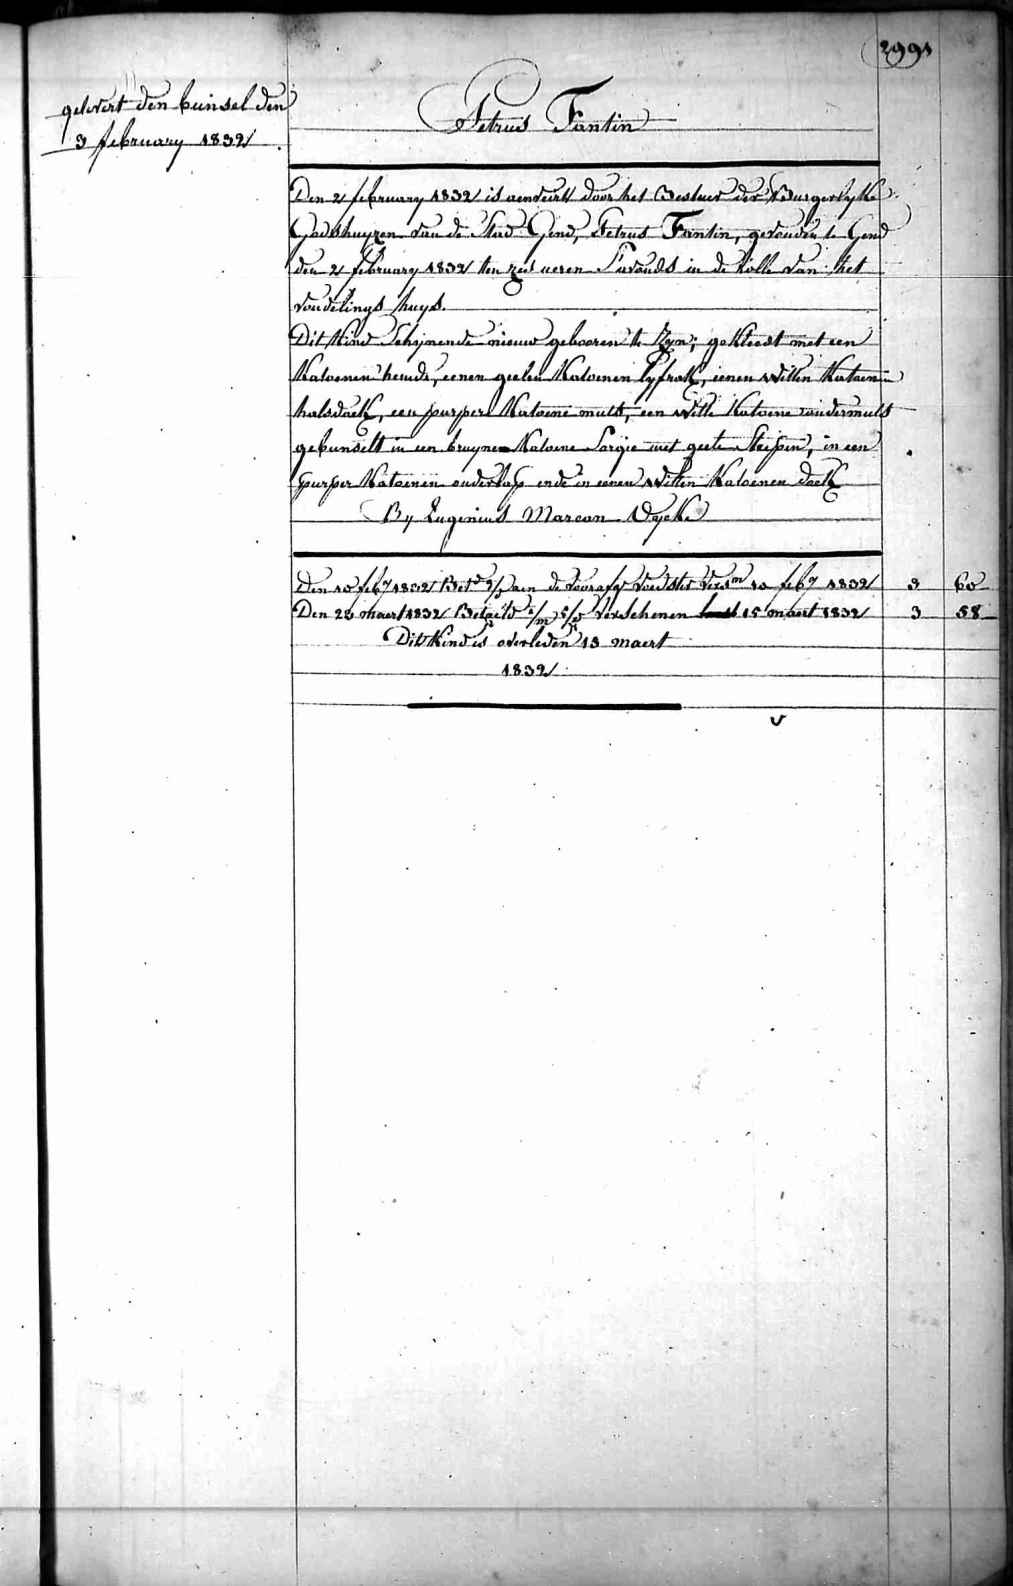 299
gelevert den bunsel den
3 february 1832
Petrus Fantin
Den 2 february 1832 is aenveirt door het Bestuer der Burgerlyke
Godshuyzen van de Stad Gend, Petrus Fantin, gevonden te Gend
den 2 february 1832 ten zes ueren s'avonds in de rolle van het
vondelings huys.
Dit Kind schynende nieuw gebooren te zyn; gekleedt met een
Katoenen hemde, eenen geelen Katoenen lyfrok, eenen witten Katoenen
halsdoek, een purper Katoene muts, een witte Katoene ondermuts
gebunselt in een bruyne Katoene Sargie met geele Strepen, in een
purper Katoenen onderlap ende in eenen witten Katoenen doek
By Eugenius Marcon Dycke
Den 10 feby 1832 Betd aen de voorafge voedster 10 feby 1832 3 60
Den 23 maert 1832 Betaeld verschenen 15 maert 1832 3 58
Dit Kind is overleden 13 maert
1832